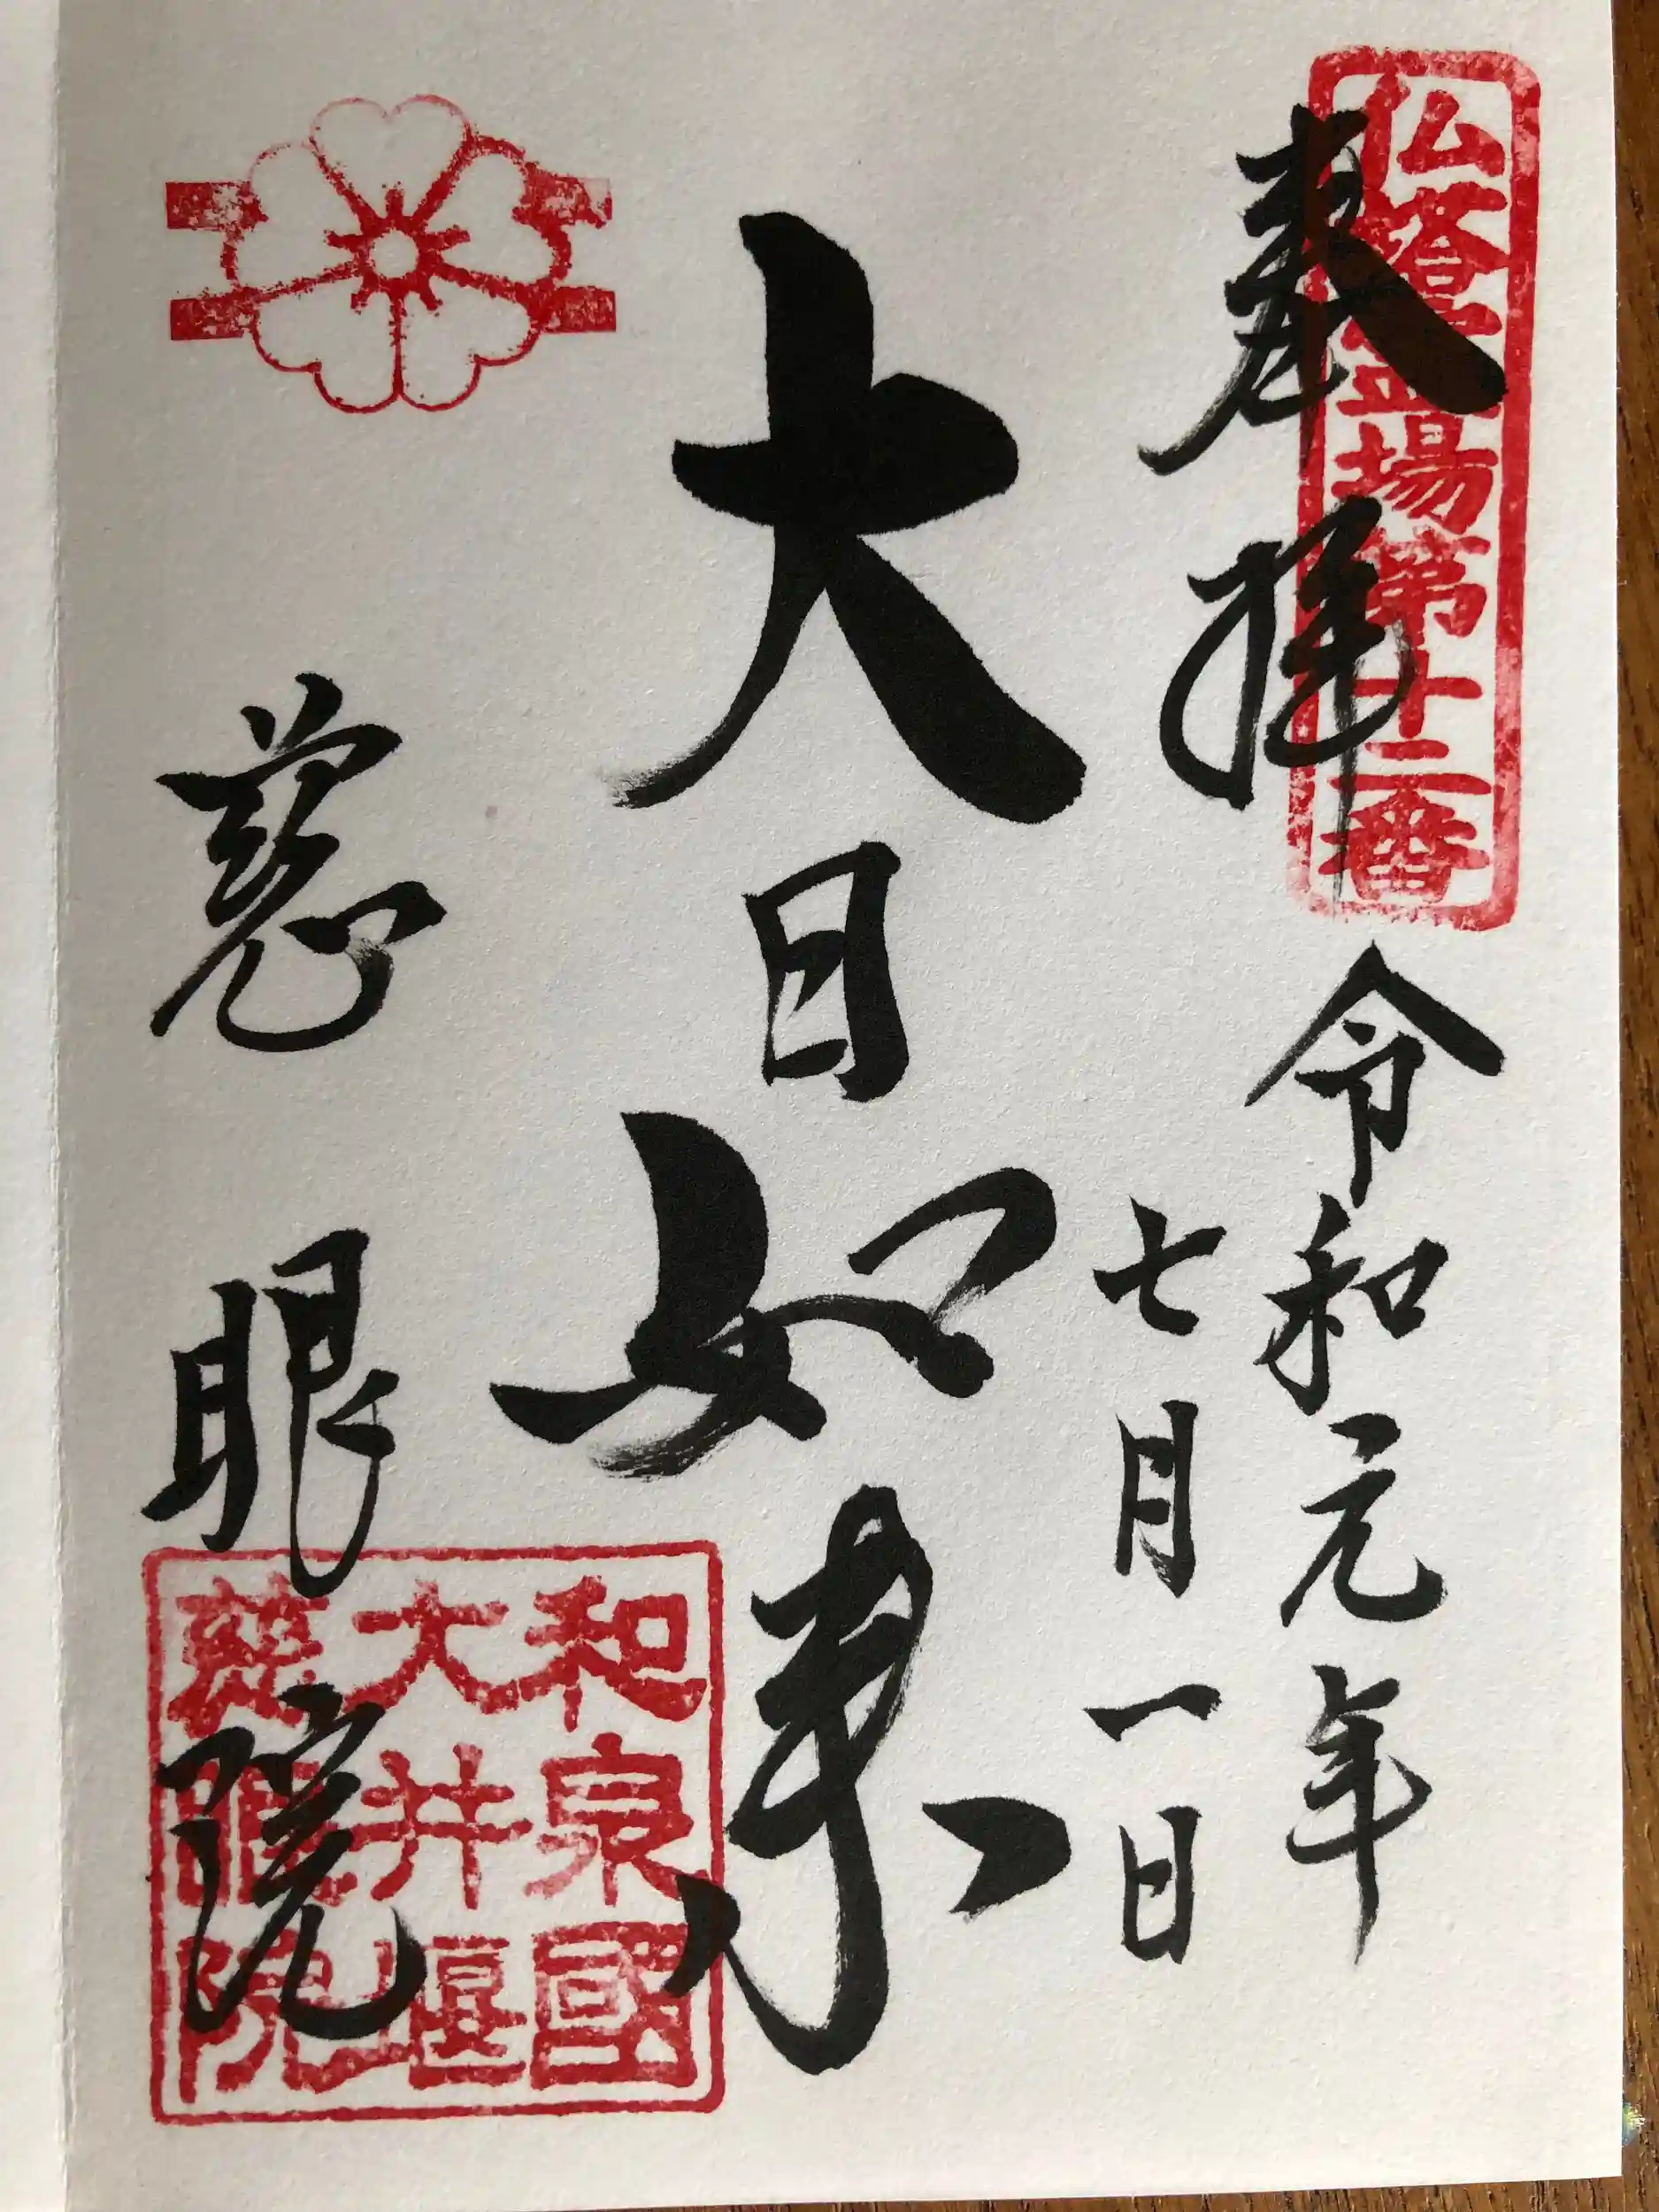 仏塔霊場第十二番
奉拝
令和元年
七月一日
大日如来
慈眼院
和泉國
大井堰
慈眼院